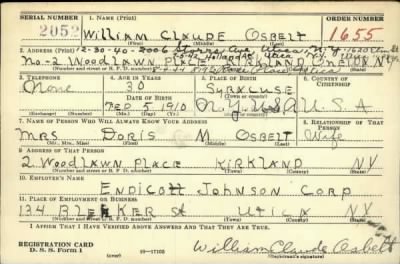 SERIAL NUMBER
1. NAME (Print)
ORDER NUMBER
2052
WILLIAM CLAUDE OSBELT
1655
(First) (Middle) (Last)
2. ADDRESS (Print)
12-30-40-2006
NO-2 WOODLAWN PLACE KIRKLAND ONEIDA NY
(Number and street or R. F. D. number) (Town) (County) (State)
3. TELEPHONE
4. AGE IN YEARS
5. PLACE OF BIRTH
6. COUNTRY OF CITIZENSHIP
None
30
SYRACUSE
DATE OF BIRTH
FEB 5, 1910
N.Y. USA
U.S.A
7. NAME OF PERSON WHO WILL ALWAYS KNOW YOUR ADDRESS
8. RELATIONSHIP OF THAT PERSON
MRS. DORIS M OSBELT
Wife
9. ADDRESS OF THAT PERSON
2 WOODLAWN PLACE KIRKLAND NY
(Number and street or R. F. D. number) (Town) (County) (State)
10. EMPLOYER'S NAME
ENDICOTT JOHNSON CORP
11. PLACE OF EMPLOYMENT OR BUSINESS
134 BLEEKER St UTICA NY
(Number and street or R. F. D. number) (Town) (County) (State)
I AFFIRM THAT I HAVE VERIFIED ABOVE ANSWERS AND THAT THEY ARE TRUE.
REGISTRATION CARD
D. S. S. Form 1
16-17105
William Claude Osbelt
(Registrant's signature)